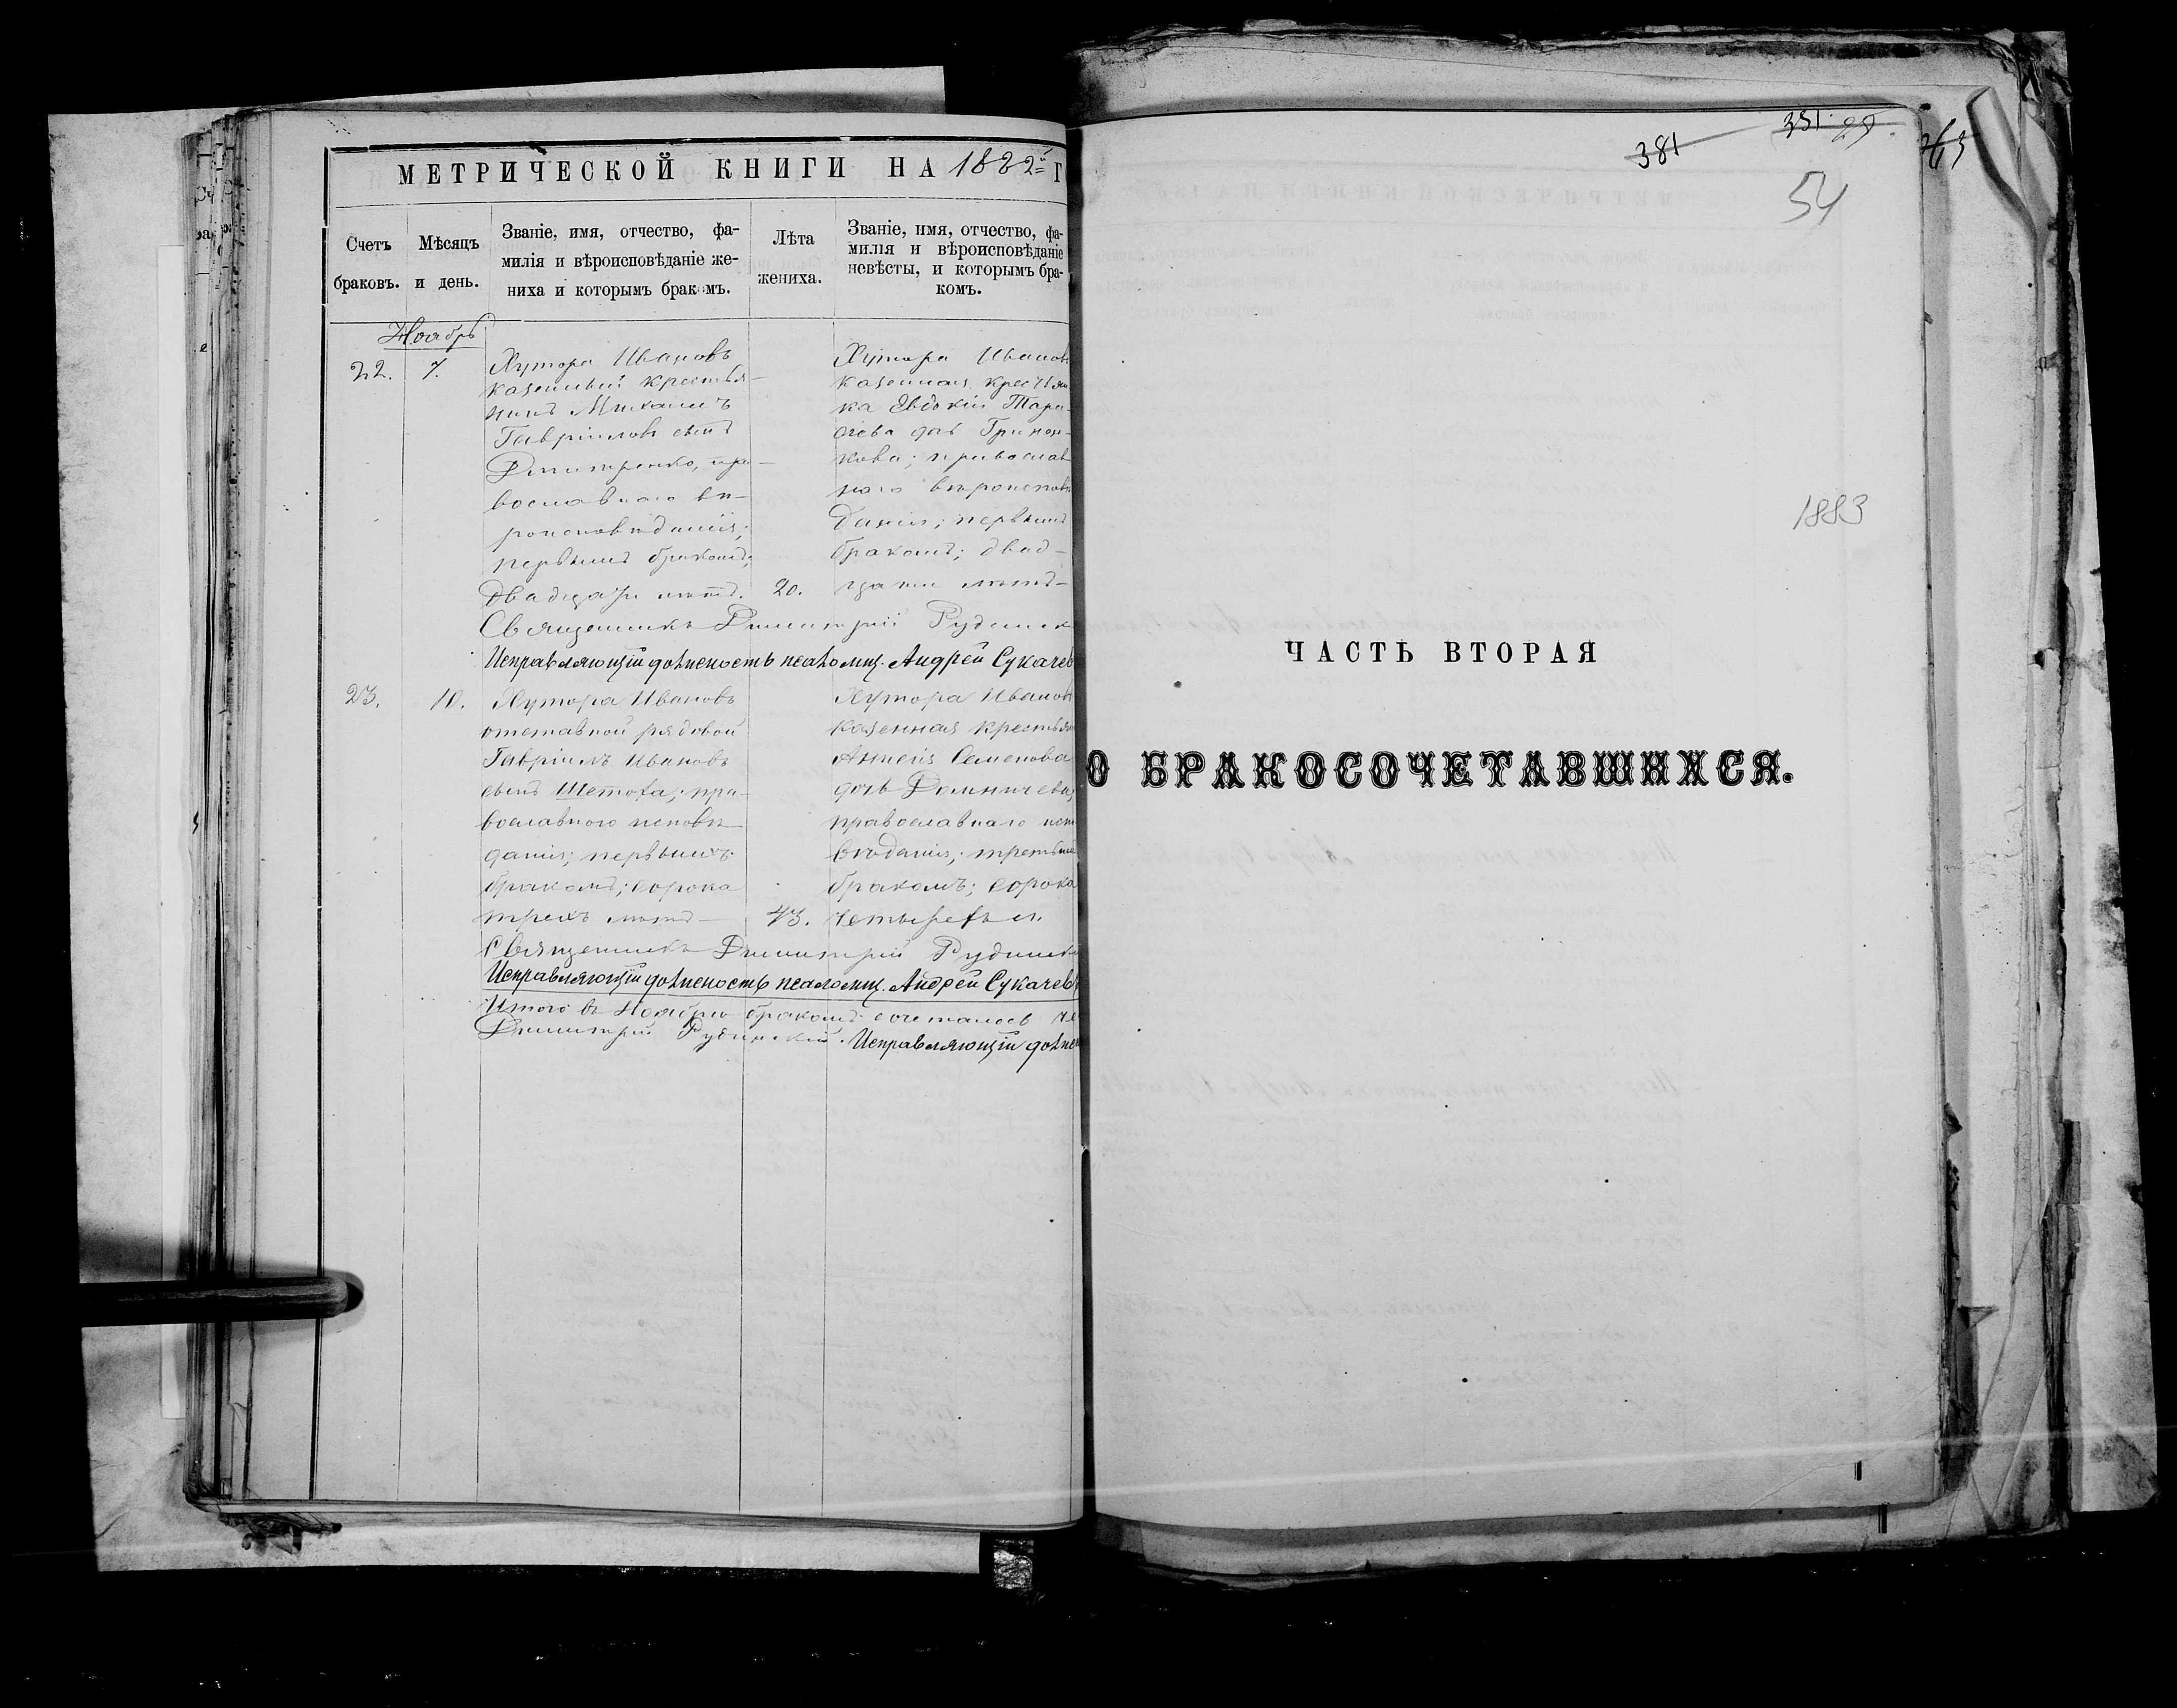 МЕТРИЧЕСКОЙ КНИГИ НА 1882й Г
Счетъ браковъ.
Мѣсяцъ и день.
Званіе, имя, отчество, фа-
милія и вѣроисповѣданіе же-
ниха и которымъ бракомъ.
Лѣта жениха.
Званіе, имя, отчество, фа-
милія и вѣроисповѣданіе
невѣсты, и которымъ бра-
комъ.
Ноябрь
22.
7.
Хутора Ивановъ
казенный крестья-
нинъ Михаилъ
Гавріиловъ сынъ
Дмитренко, пра-
вославнаго вѣ-
роисповѣданія;
первымъ бракомъ;
двадцати лѣтъ.
20.
Хутора Иванов
казенная крестьян
ка Евдокія Тара-
сіева дочь
православ
наго вѣроисповѣ
данія; первымъ
бракомъ; двад-
цати лѣтъ-
Священникъ Димитрій Рудинск
Исправляющій должность псаломщ. Андрей Сукачев
23.
10.
Хутора Ивановъ
отставной рядовой
Гавріилъ Ивановъ
сынъ Шетоха; пра-
вославного исповѣ-
данія; первымъ
бракомъ; сорока
трехъ лѣтъ-
43.
Хутора Иванов
казенная крестьян
Семенова
дочь
православнаго испо
вѣданія; третьим
бракомъ; сорока
четырехъ л.
Священникъ Димитрій Рудинск
Исправляющій должность псаломщ. Андрей Сукачев
Итого въ Ноябрѣ бракомъ сочеталось че
Димитрій Рудинскій. Исправляющій должн
381
351
29.
54
1883
ЧАСТЬ ВТОРАЯ
О БРАКОСОЧЕТАВШИХСЯ.